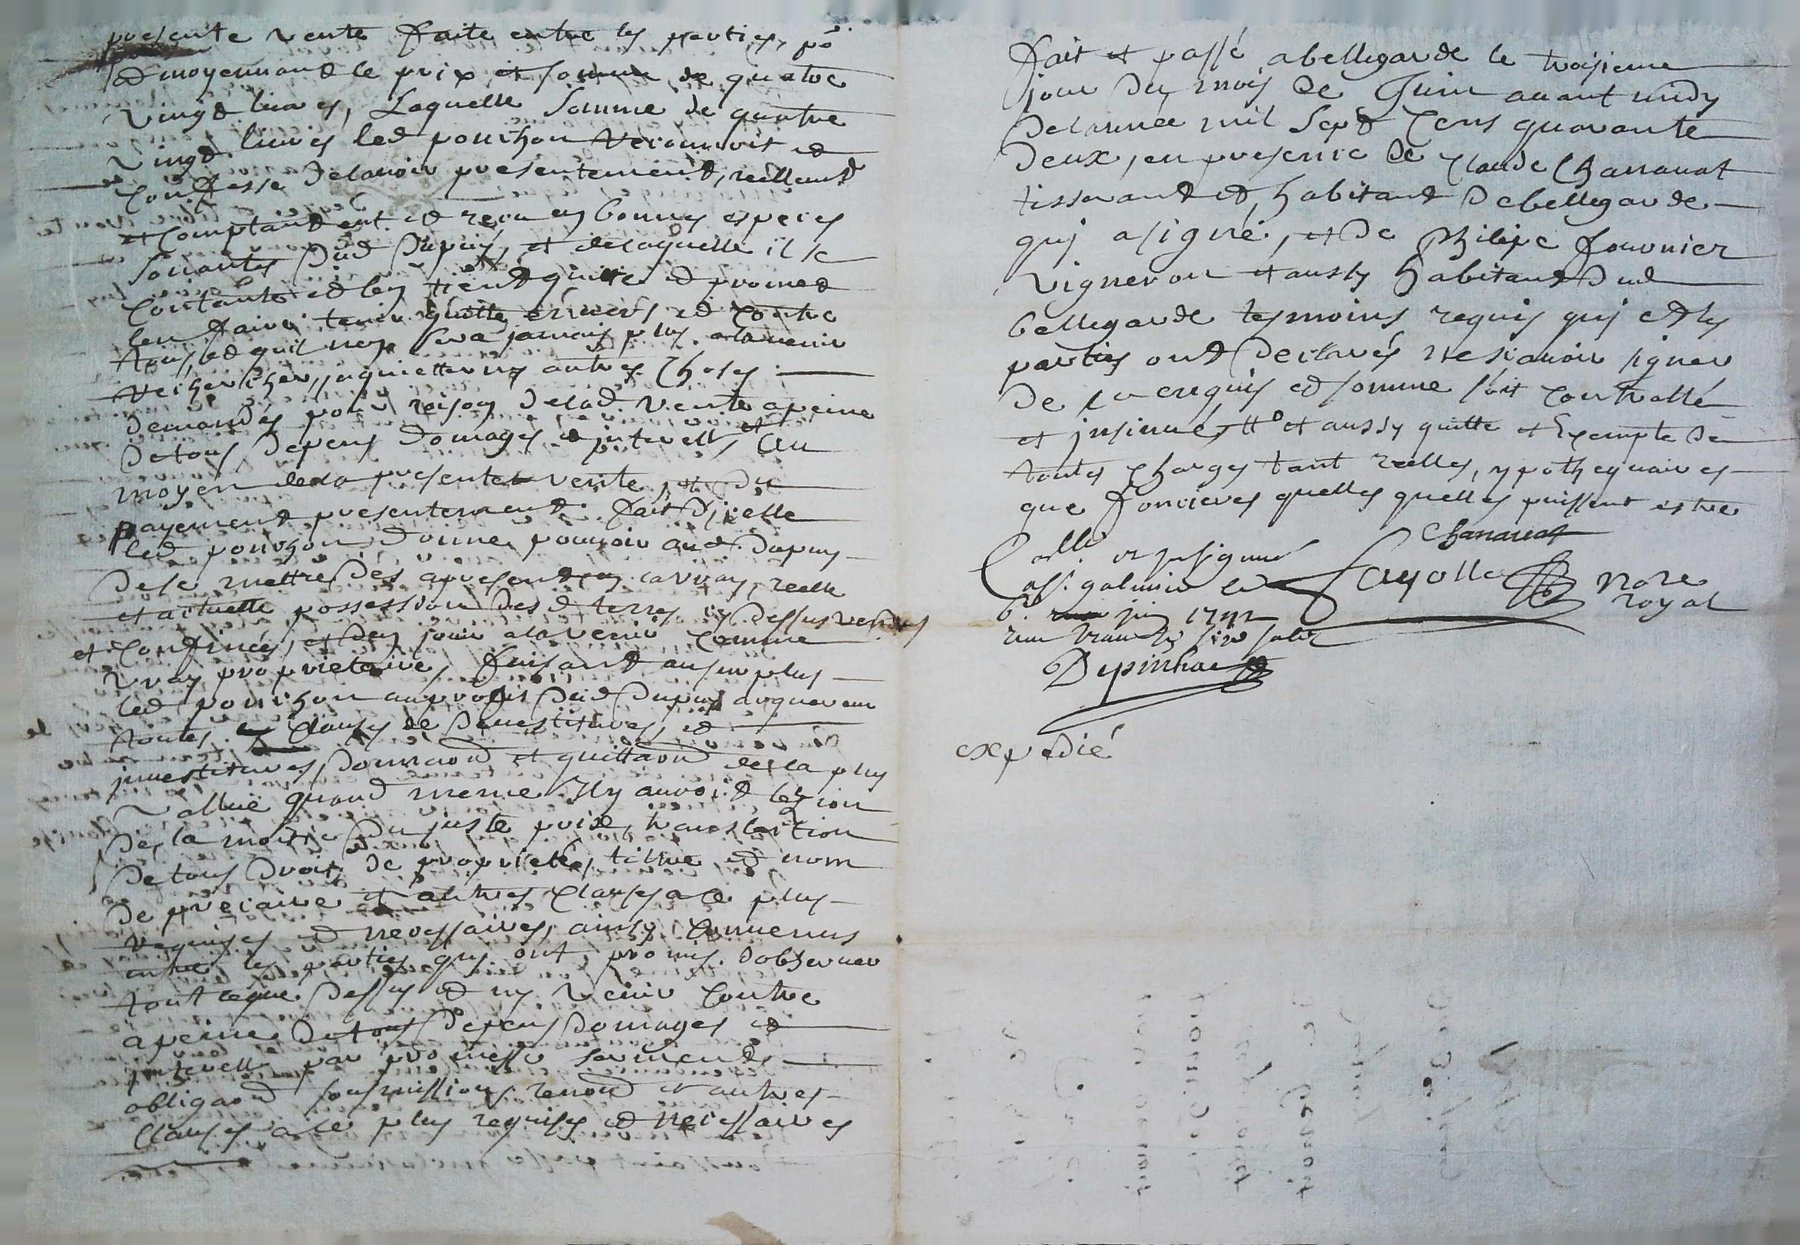 presente vente faite entre les parties, po
et moyennand le prix et somme de quatre
vingt livres, Laquelle somme de quatre
vingt livres led pouchon reconnoit et
Confesse delavoir presentement, reellemt
et comptantemt. et receu en bonnes especes
sonantes dud Dupuy, et delaquelle il se
contante et len tient quitte et promet
len faire tenir quitte envers et contre
tous, et quil nen sera jamais plus alavenir
rechercher, inquietter ny autres choses
demandés pour raison delad. vente apeine
detous depens domages et interests, Au
moyen dela presente vente, et du
payement presentement fait Dicelle
led pouchon donne pouvoir aud. Dupuy
dese mettre dés apresent en la vray, reelle
et actuelle possession desd terres cy dessus vendus
et Confinées, et den jouir alavenir comme
vray proprietaire, faisant ausurplus
led pouchon auproffit dud Dupuy acquereur
toutes clauses de devestitures, et
investitures, donnaon et quittaon dela plus
vallue quand meme Ily auroit lezion
de la moitié du juste prix, translation
de tous droits de proprieté, titre et nom
de precaire et autres clauses a ce plus
requises et necessaires, ainsy convenus
entre les parties qui ont promis dobserver
tout ceque dessus et ny venir contre
apeine de tous depens domages et
interests par promesse serments
obligaon soumissions renon et autres
clauses a ce plus requises et necessaires
fait et passé abellegarde le troisieme
jour du mois de Juin avant midy
delannée mil sept Cens quarante
deux, en presence de Claude Chananat
tisserant et habitant debellegarde
qui asigné, et de philipe fournier
vigneron et aussy habitant dud
bellegarde tesmoins requis qui et les
parties ont declarés ne scavoir signer
de ce enquis et somme soit controllé
et insinue, # et aussy quitte et Exempte de
toutes charges tant reelles, ypothequaires
que foncieres quelles quelles puissent estre
Chananat
Collé et insinué
a st. galmier le
6e juin 1742
Fayolle nore
royal
Depinhac
expedié